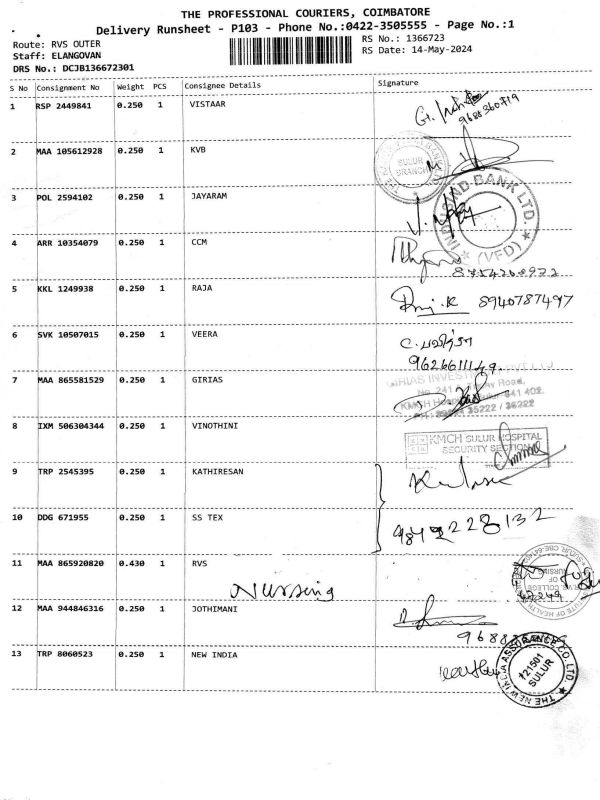 THE PROFESSIONAL COURIERS, COIMBATORE
Delivery Runsheet - P103 - Phone No.:0422-3505555 - Page No.:1
Route: RVS OUTER
RS No.: 1366723
Staff: ELANGOVAN
RS Date: 14-May-2024
DRS No.: DCJB136672301
S No Consignment No Weight PCS Consignee Details Signature
1 RSP 2449841 0.250 1 VISTAAR
2 MAA 105612928 0.250 1 KVB
SULUR
BRANCH
3 POL 2594102 0.250 1 JAYARAM
INDUSIND BANK LTD.
(VFD)
4 ARR 10354079 0.250 1 CCM
5 KKL 1249938 0.250 1 RAJA
8940787497
6 SVK 10507015 0.250 1 VEERA
9626611149
7 MAA 865581529 0.250 1 GIRIAS
8 IXM 506304344 0.250 1 VINOTHINI
KMCH SULUR HOSPITAL
SECURITY SECTION
9 TRP 2545395 0.250 1 KATHIRESAN
10 DDG 671955 0.250 1 SS TEX
11 MAA 865920820 0.430 1 RVS
Nursing
12 MAA 944846316 0.250 1 JOTHIMANI
13 TRP 8060523 0.250 1 NEW INDIA
THE NEW INDIA ASSURANCE CO. LTD.
721501
SULUR